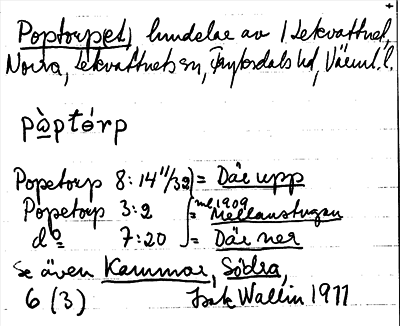 Poptorpet, lundelar av 1 Lekvattnet,
Norra, Lekvattnets sn, Fryksdals hd, Värml. l.
pàptórp
Popetorp 8:14"/32 = Där upp
Popetorp 3:2 = ml. 1909 Mellanstugan
do 7:20 = Där ner
Se även Kammar, Södra,
6 (3) Isak Wallin 1911